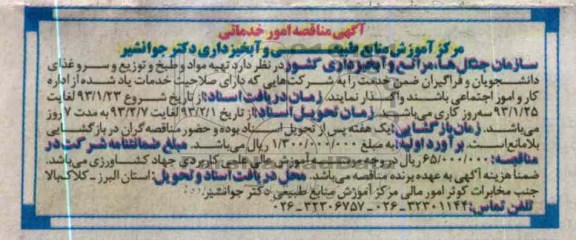 آگهی مناقصه امور خدماتی
مرکز آموزش منابع طبیعی و آبخیزداری دکتر جوانشیر
سازمان جنگل‌ها، مراتع و آبخیزداری کشور در نظر دارد تهیه مواد و طبخ و توزیع و سرو غذای
دانشجویان و فراگیران ضمن خدمت را به شرکت‌هایی که دارای صلاحیت خدمات یاد شده از اداره
کار و امور اجتماعی باشند واگذار نمایند. زمان دریافت اسناد: از تاریخ شروع ۹۳/۱/۲۳ لغایت
۹۳/۱/۲۵ سه روز کاری می‌باشد. زمان تحویل اسناد: از تاریخ ۹۳/۲/۱ لغایت ۹۳/۲/۷ به مدت ۷ روز
می‌باشند. زمان بازگشایی: یک هفته پس از تحویل اسناد بوده و حضور مناقصه‌گران در بازگشایی
بلامانع است. برآورد اولیه: به مبلغ ۱/۳۰۰/۰۰۰/۰۰۰ ریال می‌باشند. مبلغ ضمانتنامه شرکت در
مناقصه: ۶۵/۰۰۰/۰۰۰ ریال در وجه موسسه آموزش عالی علمی کاربردی جهاد کشاورزی می‌باشد.
ضمناً هزینه آگهی به عهده برنده مناقصه می‌باشد. محل دریافت اسناد و تحویل: استان البرز ـ کلاک بالا
جنب مخابرات کوثر امور مالی مرکز آموزش منابع طبیعی دکتر جوانشیر.
تلفن تماس: ۳۲۳۰۱۱۴۴ـ۰۲۶ ـ ۳۲۳۰۶۷۵۷ـ۰۲۶